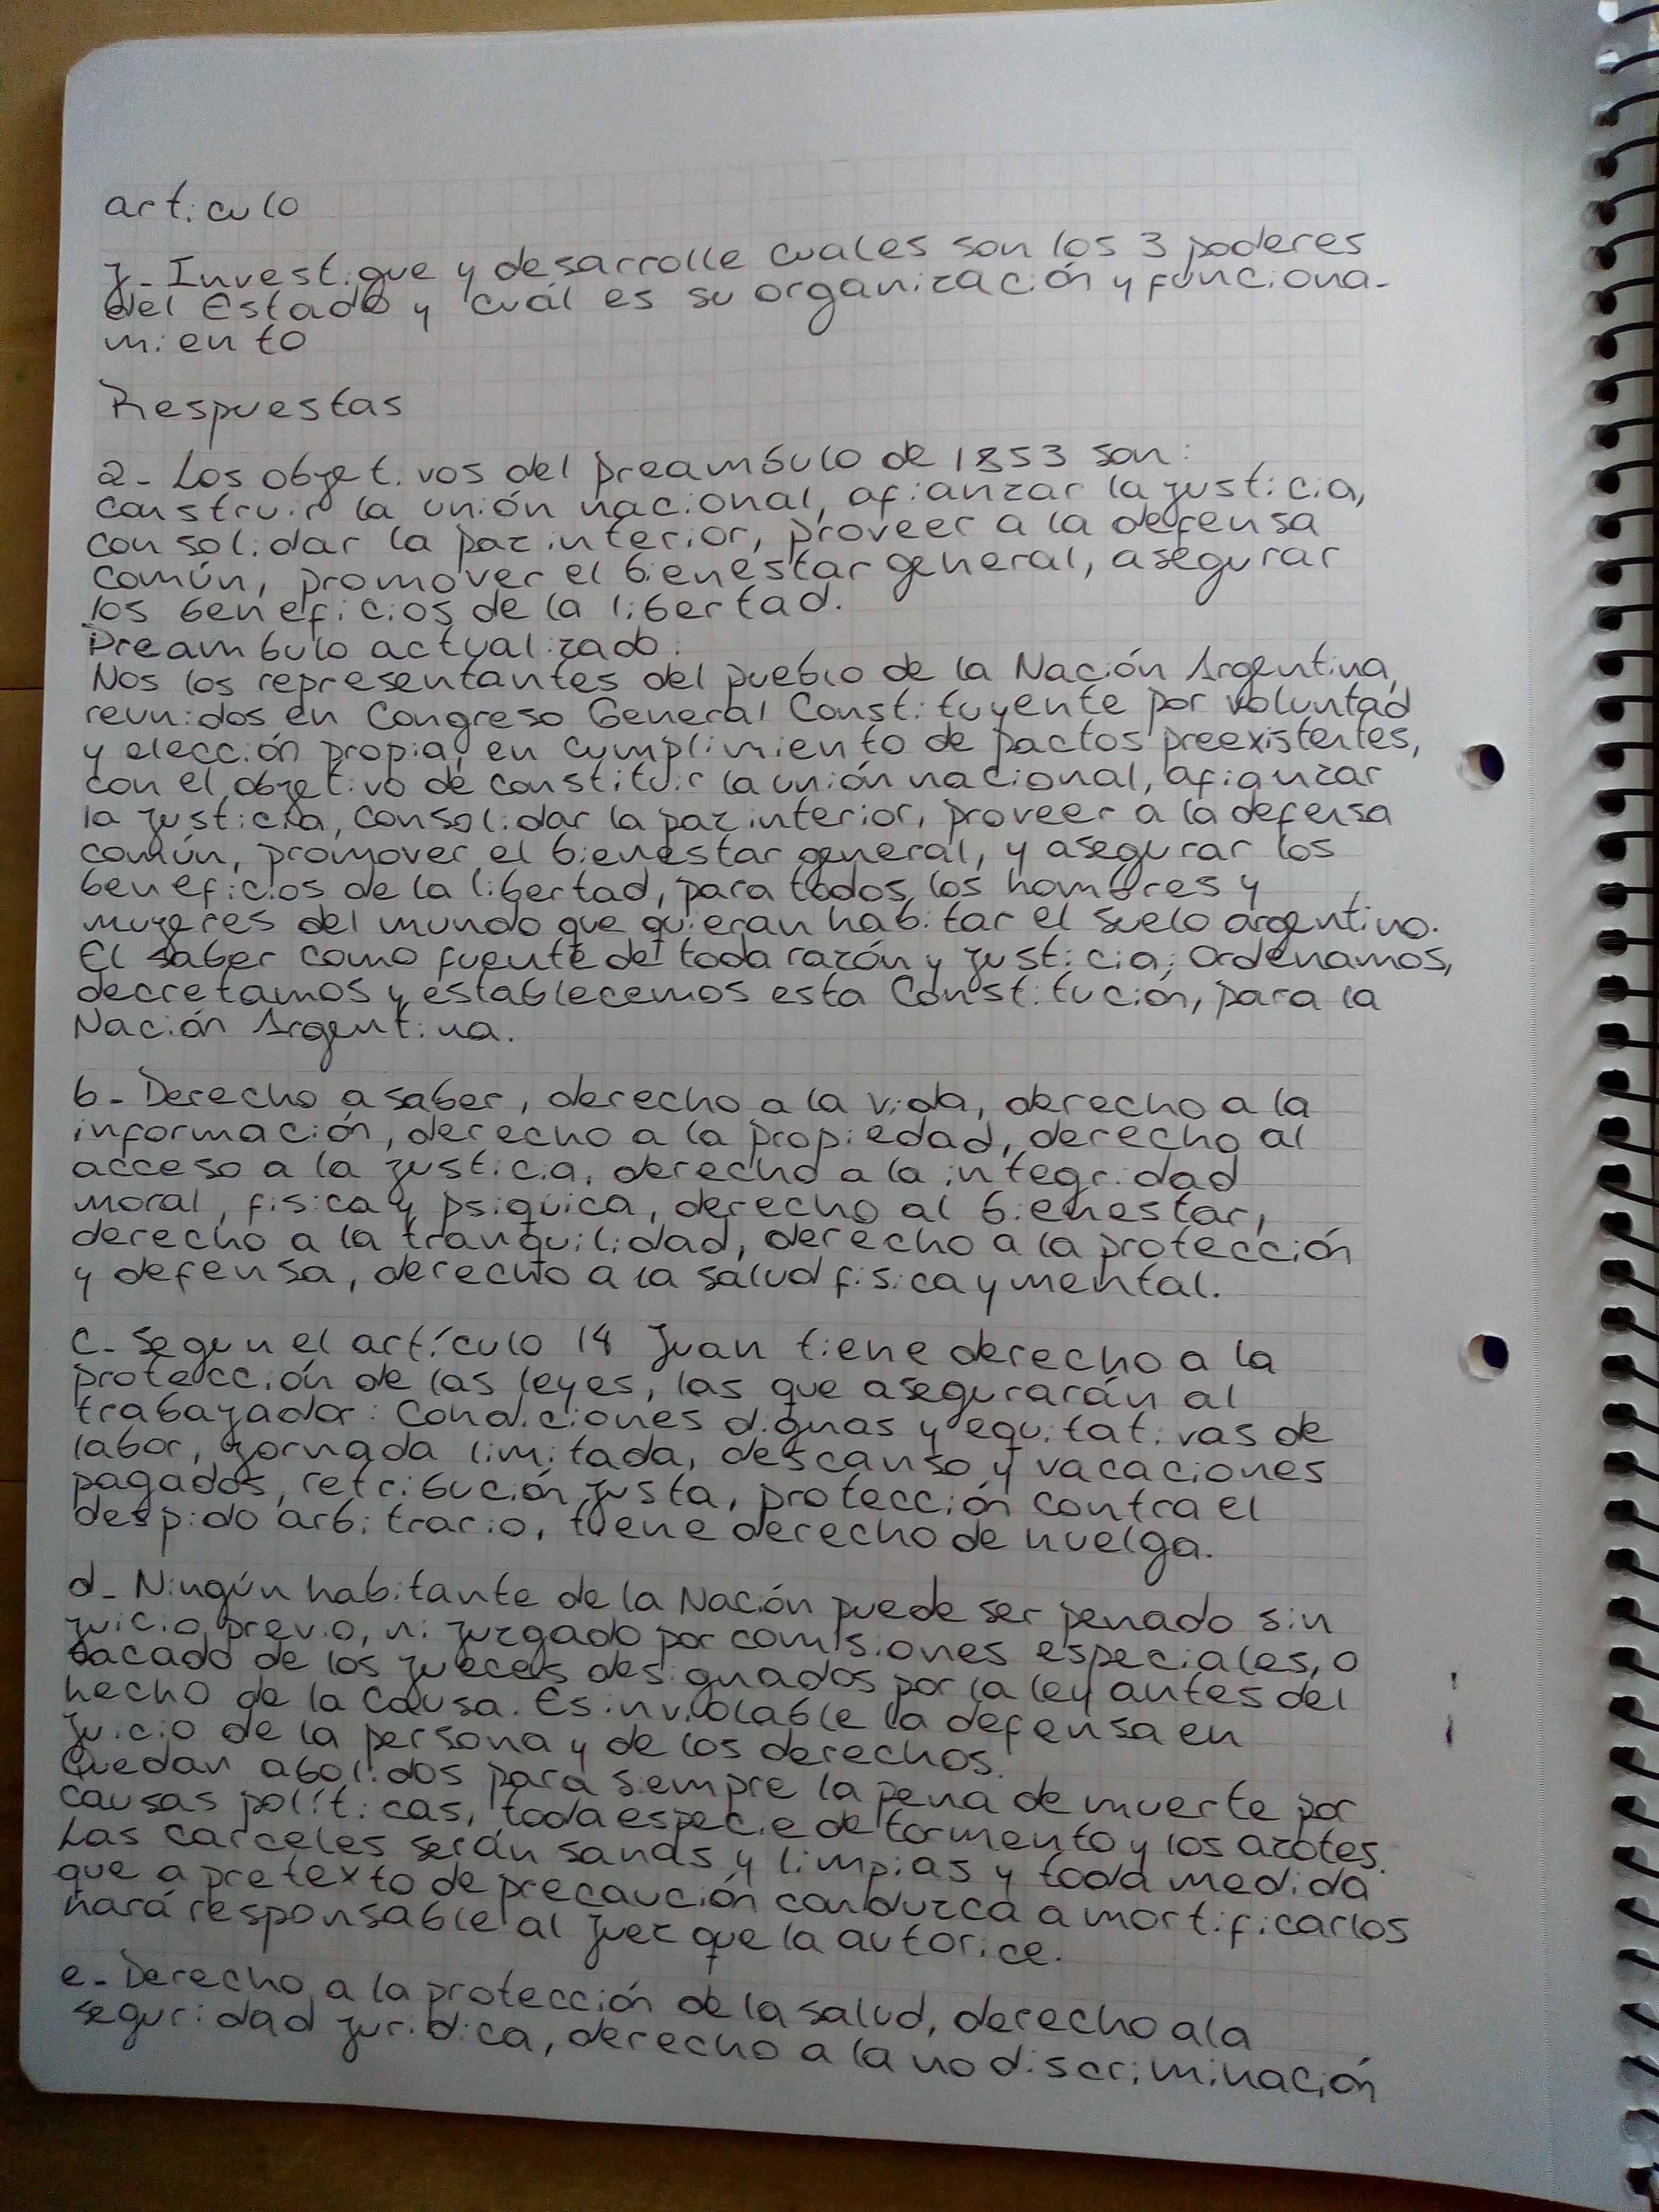 articulo
J- Investigue y desarrolle cuales son los 3 poderes
del Estado y cuál es su organización y funciona-
miento
Respuestas
a- Los objetivos del preambulo de 1853 son:
construir la unión nacional, afianzar la justicia,
consolidar la paz interior, proveer a la defensa
común, promover el bienestar general, asegurar
los beneficios de la libertad.
Preambulo actualizado:
Nos los representantes del pueblo de la Nación Argentina,
reunidos en Congreso General Constituyente por voluntad
y elección propia, en cumplimiento de pactos preexistentes,
con el objetivo de constituir la unión nacional, afianzar
la justicia, consolidar la paz interior, proveer a la defensa
común, promover el bienestar general, y asegurar los
beneficios de la libertad, para todos los hombres y
mujeres del mundo que quieran habitar el suelo argentino.
El saber como fuente de toda razón y justicia; Ordenamos,
decretamos y establecemos esta Constitución, para la
Nación Argentina.
b- Derecho a saber, derecho a la vida, derecho a la
información, derecho a la propiedad, derecho al
acceso a la justicia, derecho a la integridad
moral, fisica y psiquica, derecho al bienestar,
derecho a la tranquilidad, derecho a la protección
y defensa, derecho a la salud fisica y mental.
c- Segun el artículo 14 Juan tiene derecho a la
protección de las leyes, las que asegurarán al
trabajador: Condiciones dignas y equitativas de
labor, jornada limitada, descanso y vacaciones
pagados, retribución justa, protección contra el
despido arbitrario, tiene derecho de huelga.
d- Ningún habitante de la Nación puede ser penado sin
juicio previo, ni juzgado por comisiones especiales, o
sacado de los jueces designados por la ley antes del
hecho de la causa. Es inviolable la defensa en
juicio de la persona y de los derechos.
Quedan abolidos para siempre la pena de muerte por
causas políticas, toda especie de tormento y los azotes.
Las carceles serán sanas y limpias y toda medida
que a pretexto de precaución conduzca a mortificarlos
hará responsable al juez que la autorice.
e- Derecho a la protección de la salud, derecho a la
seguridad juridica, derecho a la no discriminación